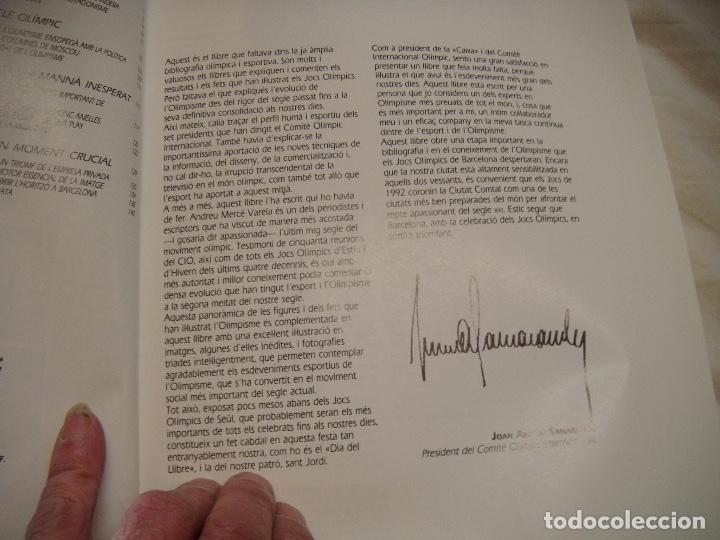 CLE OLÍMPIC
L'OLIMPISME ENSOPEGÀ AMB LA POLÍTICA
COLUMNES DE MOSCOU
TAL DE L'OLIMPISME
MANNÀ INESPERAT
IMPORTANT DE
CINC ANELLES
PLAY
UN MOMENT CRUCIAL
UN TRIOMF DE L'EMPRESA PRIVADA
MOTOR ESSENCIAL DE LA IMATGE
OBRIR L'HORITZÓ A BARCELONA
Aquest és el llibre que faltava dins la ja àmplia
bibliografia olímpica i esportiva. Són molts i
valuosos els llibres que expliquen i comenten els
resultats i els fets que han il·lustrat els Jocs Olímpics.
Però faltava el que expliqués l'evolució de
l'Olimpisme des del rigor del segle passat fins a la
seva definitiva consolidació als nostres dies.
Així mateix, calia traçar el perfil humà i esportiu dels
set presidents que han dirigit el Comitè Olímpic
Internacional. També havia d'explicar-se la
importantíssima aportació de les noves tècniques de
la informació, del disseny, de la comercialització i,
no cal dir-ho, la irrupció transcendental de la
televisió en el món olímpic, com també tot allò que
l'esport ha aportat a aquest mitjà.
A més a més, aquest llibre l'ha escrit qui ho havia
de fer. Andreu Mercé Varela és un dels periodistes i
escriptors que ha viscut de manera més acostada
—i gosaria dir apassionada— l'últim mig segle del
moviment olímpic. Testimoni de cinquanta reunions
del CIO, així com de tots els Jocs Olímpics d'Estiu i
d'Hivern dels últims quatre decennis, és qui amb
més autoritat i millor coneixement podia comentar la
densa evolució que han tingut l'esport i l'Olimpisme
a la segona meitat del nostre segle.
Aquesta panoràmica de les figures i dels fets que
han il·lustrat l'Olimpisme és complementada en
aquest llibre amb una excel·lent il·lustració en
imatges, algunes d'elles inèdites, i fotografies
triades intel·ligentment, que permeten contemplar
agradablement els esdeveniments esportius de
l'Olimpisme, que s'ha convertit en el moviment
social més important del segle actual.
Tot això, exposat pocs mesos abans dels Jocs
Olímpics de Seül, que probablement seran els més
importants de tots els celebrats fins als nostres dies,
constitueix un fet cabdal en aquesta festa tan
entranyablement nostra, com ho és el «Dia del
Llibre», i la del nostre patró, sant Jordi.
Com a president de la «Caixa» i del Comitè
Internacional Olímpic, sento una gran satisfacció en
presentar un llibre que feia molta falta, perquè
il·lustra el que avui és l'esdeveniment més gran dels
nostres dies. Aquest llibre està escrit per una
persona que jo considero un dels experts en
Olimpisme més preuats de tot el món i, cosa que
és més important per a mi, un íntim col·laborador
meu i un eficaç company en la meva tasca contínua
dintre de l'esport i de l'Olimpisme.
Aquest llibre obre una etapa important en la
bibliografia i en el coneixement de l'Olimpisme que
els Jocs Olímpics de Barcelona despertaran. Encara
que la nostra ciutat està altament sensibilitzada en
aquells dos vessants, és convenient que els Jocs de
1992 coronin la Ciutat Comtal com una de les
ciutats més ben preparades del món per afrontar el
repte apassionant del segle XXI. Estic segur que
Barcelona, amb la celebració dels Jocs Olímpics, en
sortirà triomfant.
JOAN ANTONI SAMARANCH
President del Comitè Olímpic Internacional
todocoleccion.net